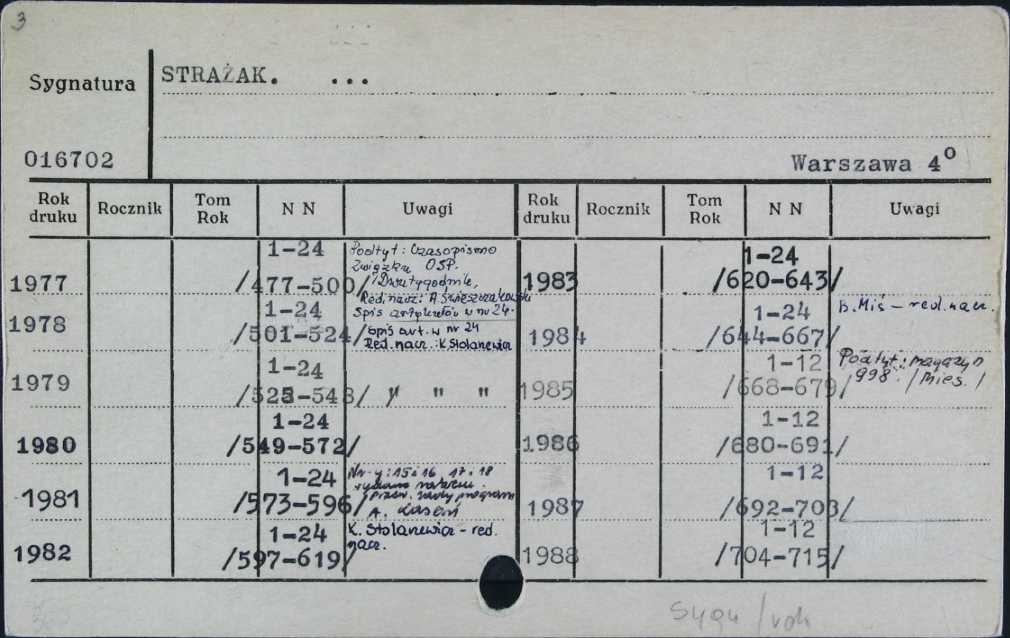 3
Sygnatura STRAŻAK. ...
016702 Warszawa 4º
Rok druku Rocznik Tom Rok N N Uwagi Rok druku Rocznik Tom Rok N N Uwagi
1977 1-24 /477-500/ Podtyt: Czasopismo
Związku OSP.
/Dwutygodnik,
Red. nacz: A.
Spis artykułów w nr 24.
1978 1-24 /501-524/ Spis art. w nr 24
Red. nacz.: K Stolanewicz
1979 1-24 /525-548/ " " "
1980 1-24 /549-572/
1981 1-24 /573-596/ Nr-y: 15 i 16 17 i 18
A.
1982 1-24 /597-619/ K. Stolanewicz - red.
nacz.
1983 1-24 /620-643/
1984 1-24 /644-667/ B. Miś - red. nacz.
1985 1-12 /668-679/ Podtyt: magazyn
998. /Mies./
1986 1-12 /680-691/
1987 1-12 /692-703/
1988 1-12 /704-715/
Sygn /rok